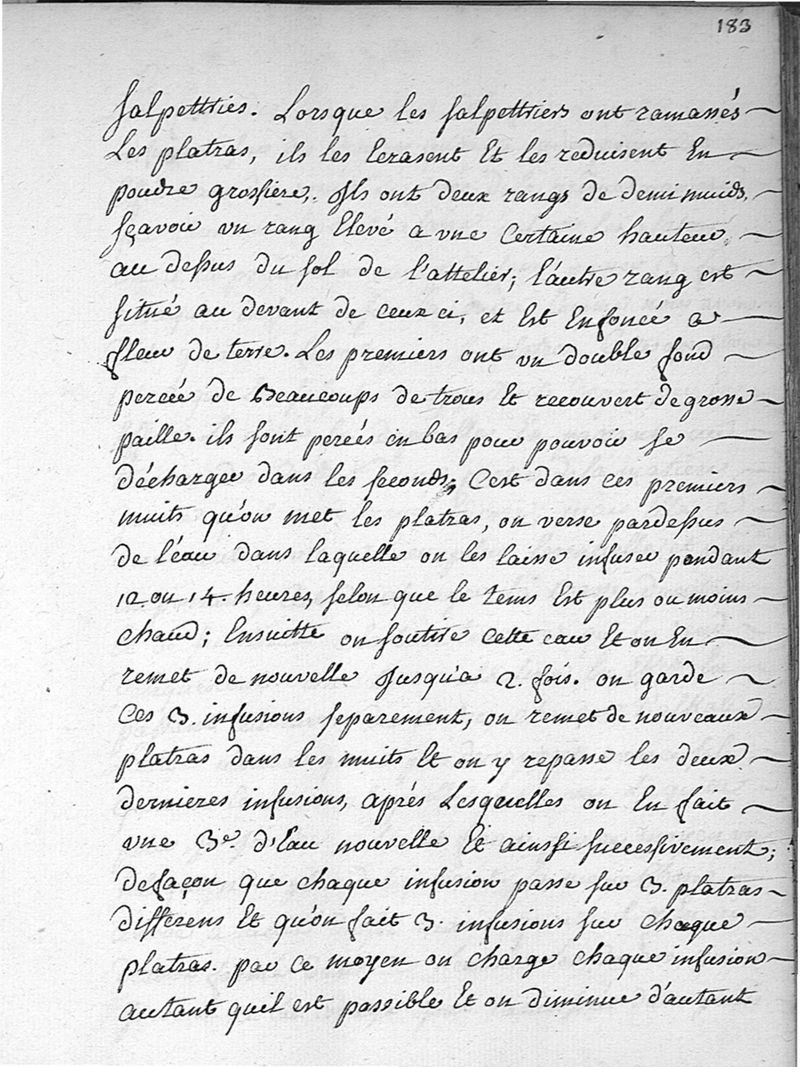 183
salpettriés. Lorsque les salpettriers ont ramassés
Les platras, ils les Ecrasent Et les reduisent En
poudre grossiere,. Ils ont deux rangs de demi muids,
sçavoir un rang Elevé a une Certaine hauteur,
au dessus du sol de l'attelier; l'autre rang est
situé au devant de ceux ci, et Est Enfoncé a
fleur de terre. Les premiers ont un double fond
percée de Beaucoups de trous Et recouvert de grosse
paille. ils sont percés en bas pour pouvoir se
décharger dans les seconds; C'est dans ces premiers
muits qu'on met les platras, on verse pardessus
de l'éau dans laquelle on les laisse infuser pendant
12. ou 14. heures, selon que le tems Est plus ou moins
chaud; Ensuitte on soutire Cette eau Et on En
remet de nouvelle Jusqu'a 2. fois. on garde
Ces 3. infusions separement, on remet de nouveaux
platras dans les muits Et on y repasse les deux
dernieres infusions, aprés Lesquelles on En fait
une 3e. d'Eau nouvelle Et ainssi successivement;
de façon que chaque infusion passe sur 3. platras
différens Et qu'on fait 3. infusions sur chaque
platras. par ce moyen on charge chaque infusion
autant qu'il est possible Et on diminue d'autant